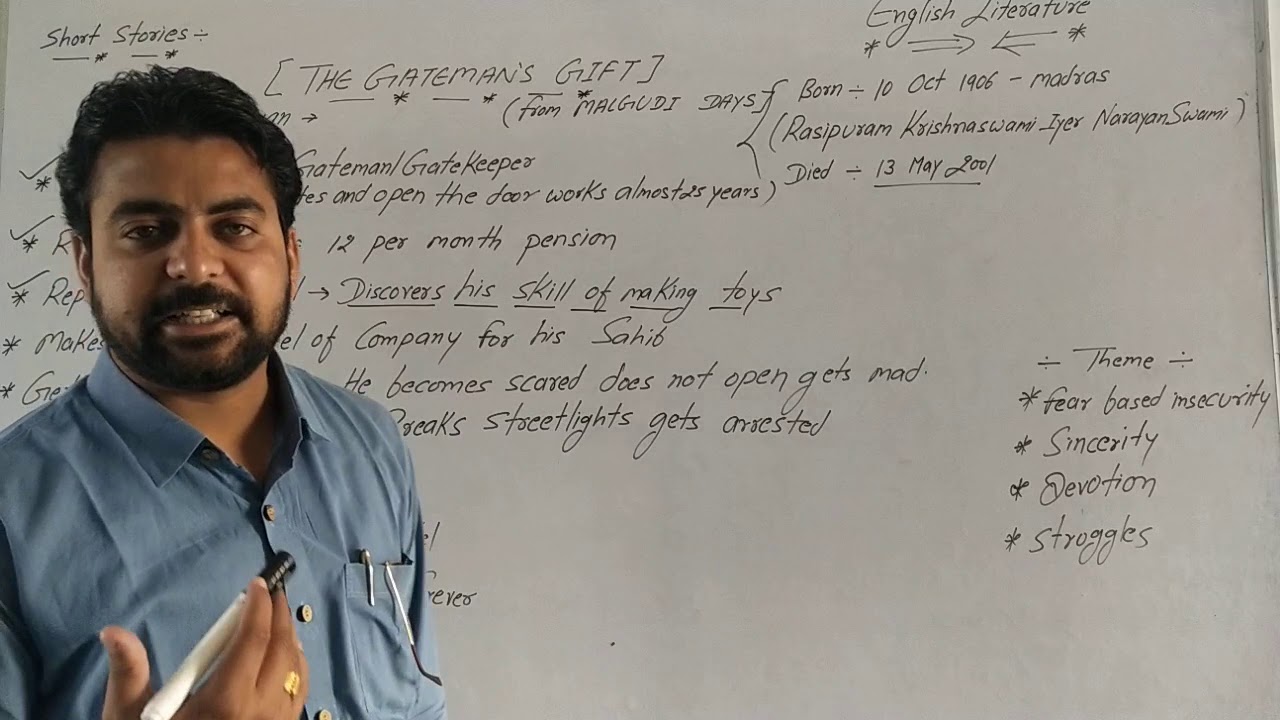 Short Stories ÷
English Literature
[ THE GATEMAN'S GIFT ]
(from MALGUDI DAYS)
Born ÷ 10 Oct 1906 - madras
(Rasipuram Krishnaswami Iyer NarayanSwami)
Died ÷ 13 May 2001
Gateman/GateKeeper
and open the door works almost 25 years)
12 per month pension
→ Discovers his skill of making toys
* Makes of Company for his Sahib
* He becomes scared does not open gets mad.
Breaks streetlights gets arrested
÷ Theme ÷
* fear based insecurity
* Sincerity
* Devotion
* Stroggles